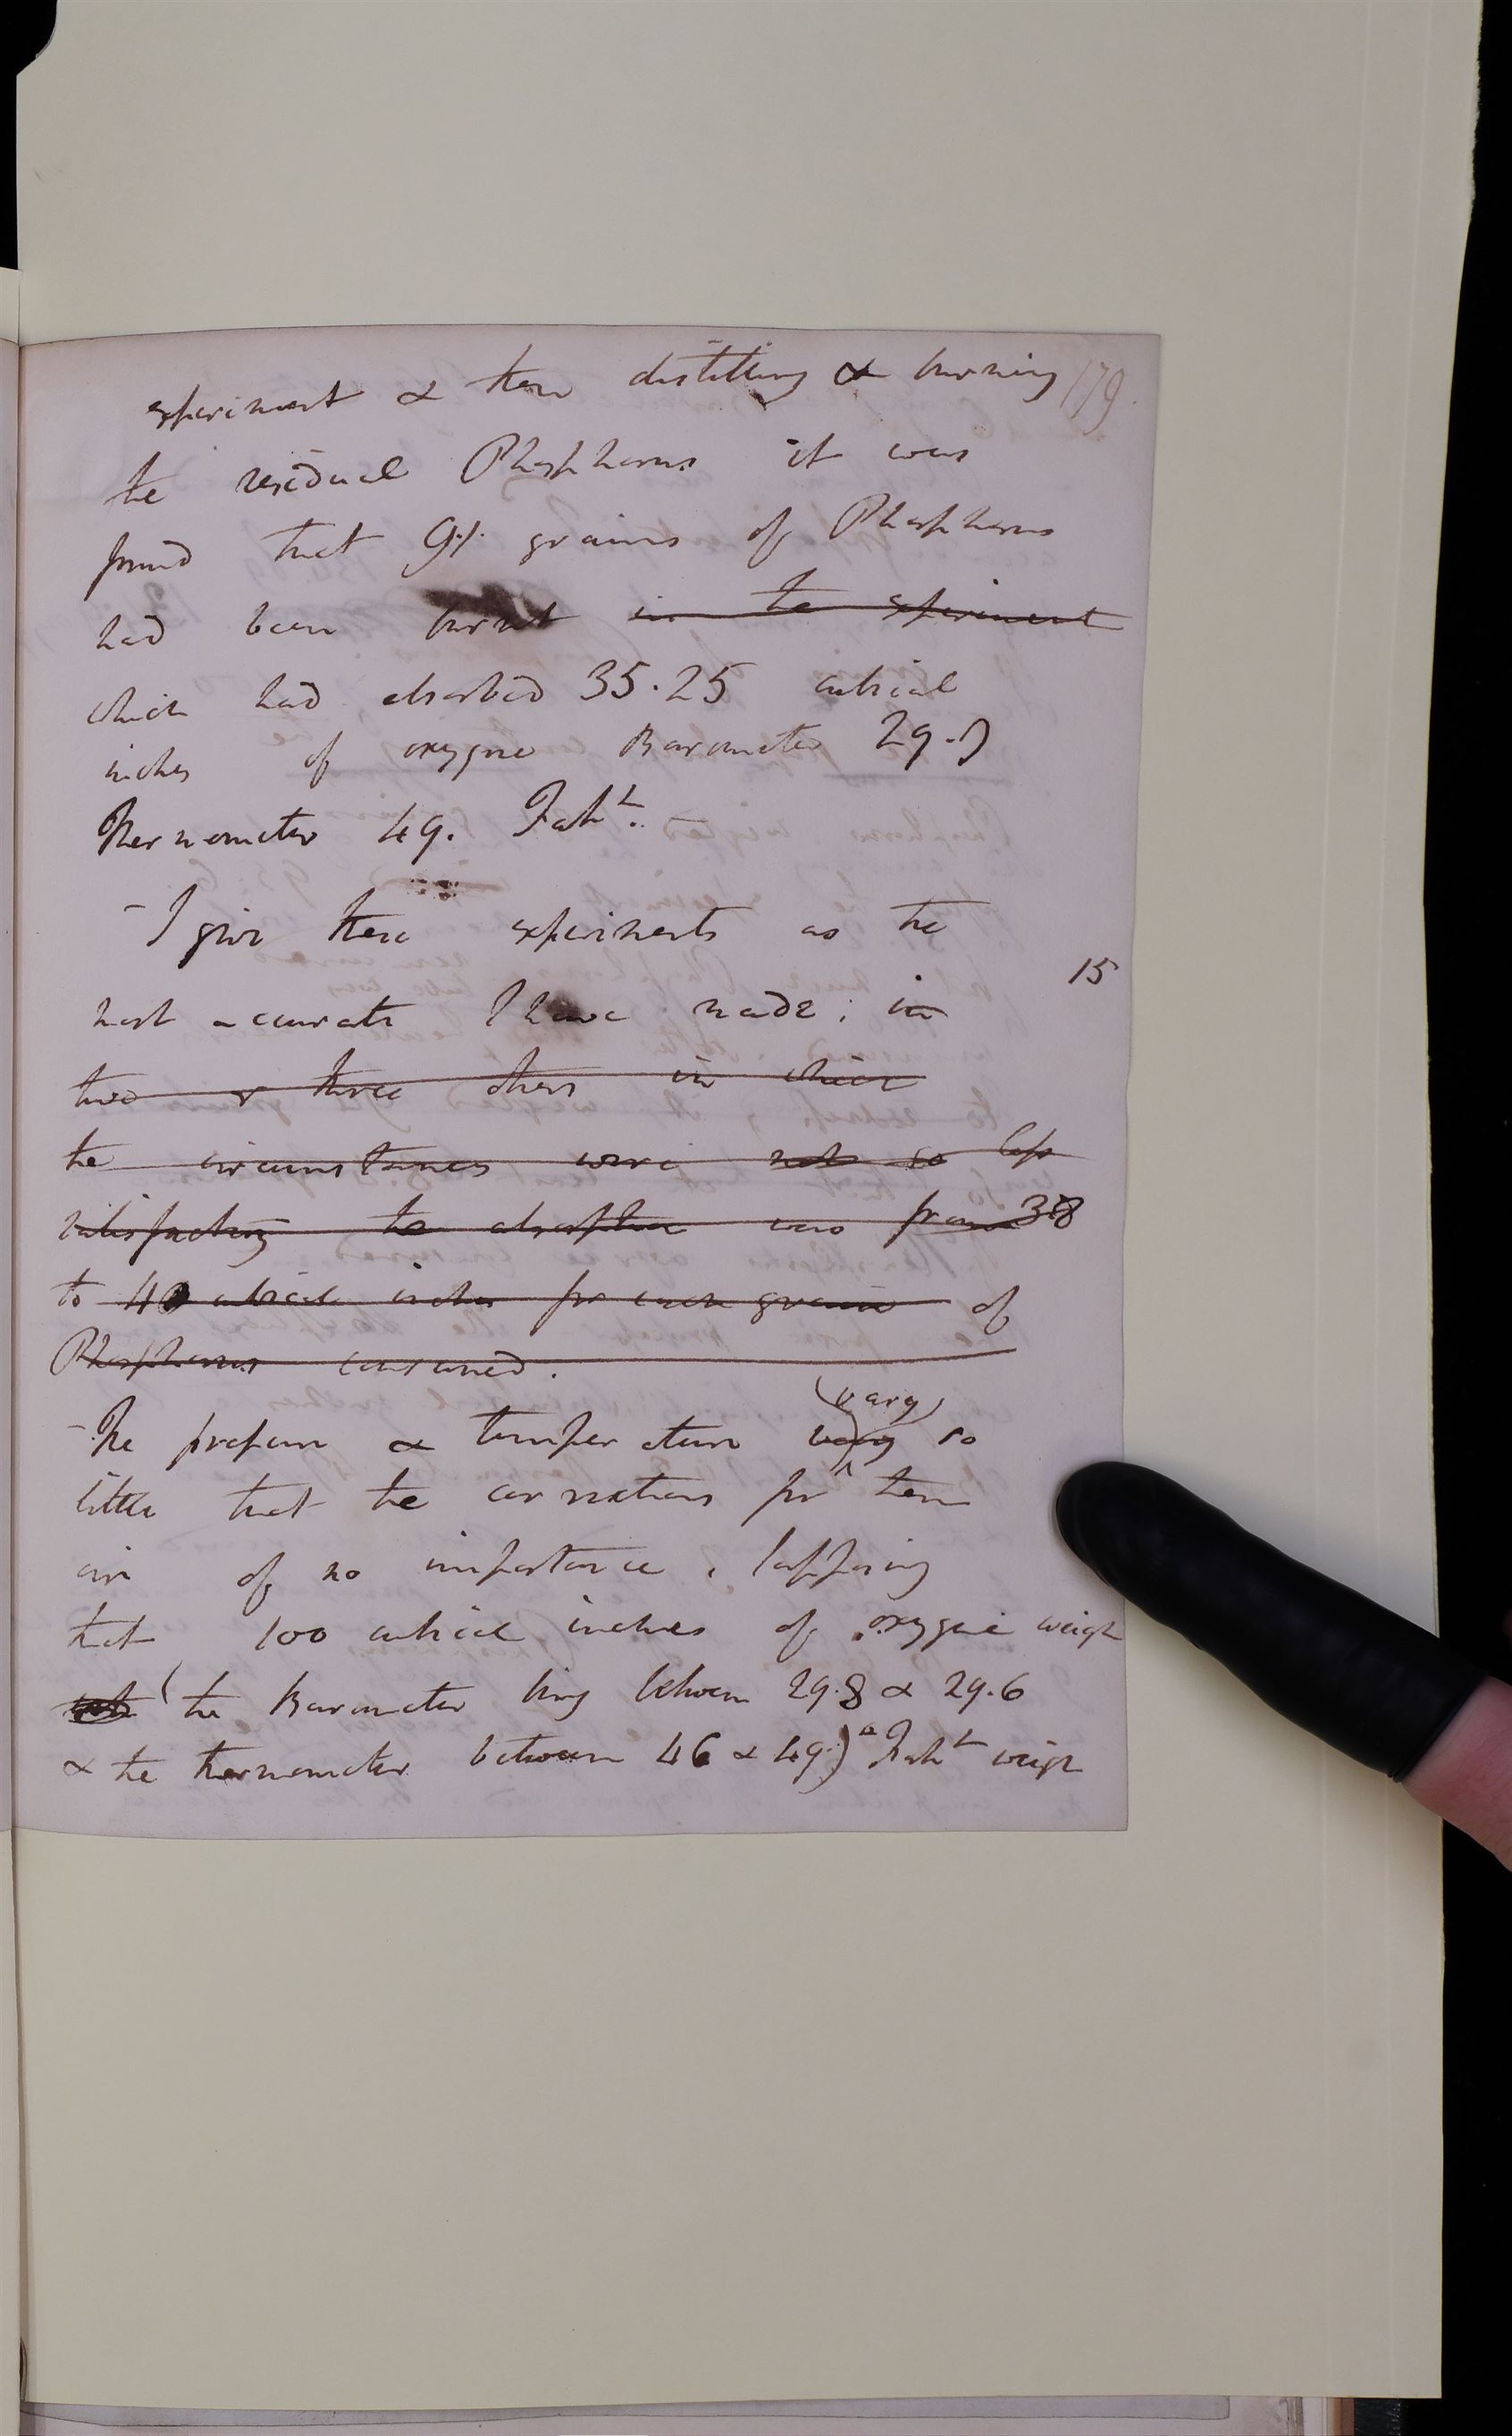 experiment & then distilling & burning 179.
the residual Phosphorus it was
found that 9.1. grains of Phosphorus
had been burnt in the experiment
which had absorbed 35.25 cubical
inches of oxygene Barometer 29.7
Thermometer 49. Faht.
- I give these experiments as the
15
most accurate I have made; in
two or three others in which
the circumstances were not so less
satisfactory the absorption was from 38
to 40 cubical inches for each grain of
Phosphorus consumed.
(vary)
- The pressure & temperature vary so
little that the corrections for ^ them
are of no importance, supposing
that 100 cubical inches of oxygene weigh
(the Barometer being between 29.8 & 29.6
& the thermometer between 46 & 49.)° Faht weigh